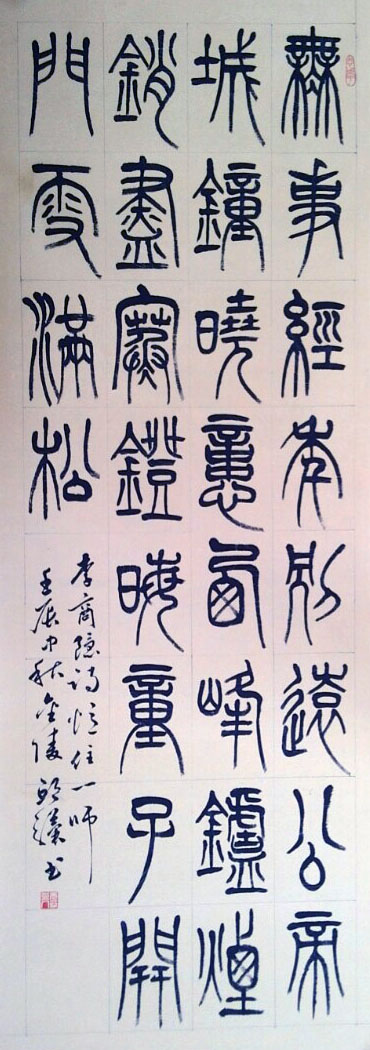 無事經年別遠公帝
城鐘曉憶西峰鑪煙
銷盡寒鐙晦童子開
門雪滿松
李商隐诗忆住一师
壬辰中秋金陵书